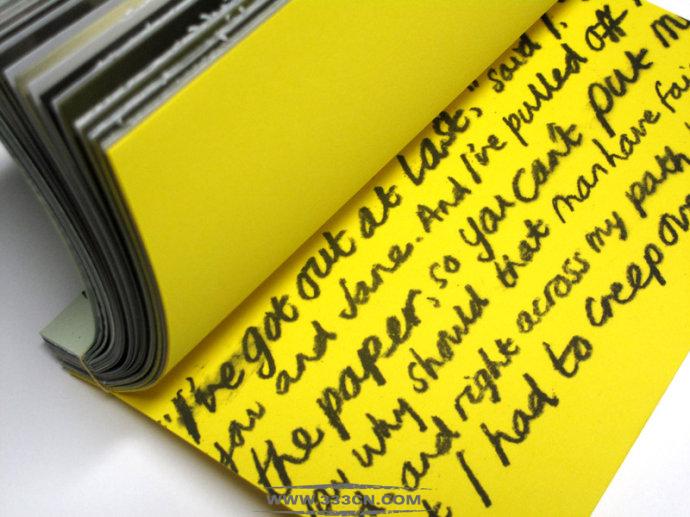 "I've got out at last," said I, "
you and Jane. And I've pulled off m
the paper, so you can't put m
why should that man have fai
and right across my path
I had to creep ov
WWW.333CN.COM